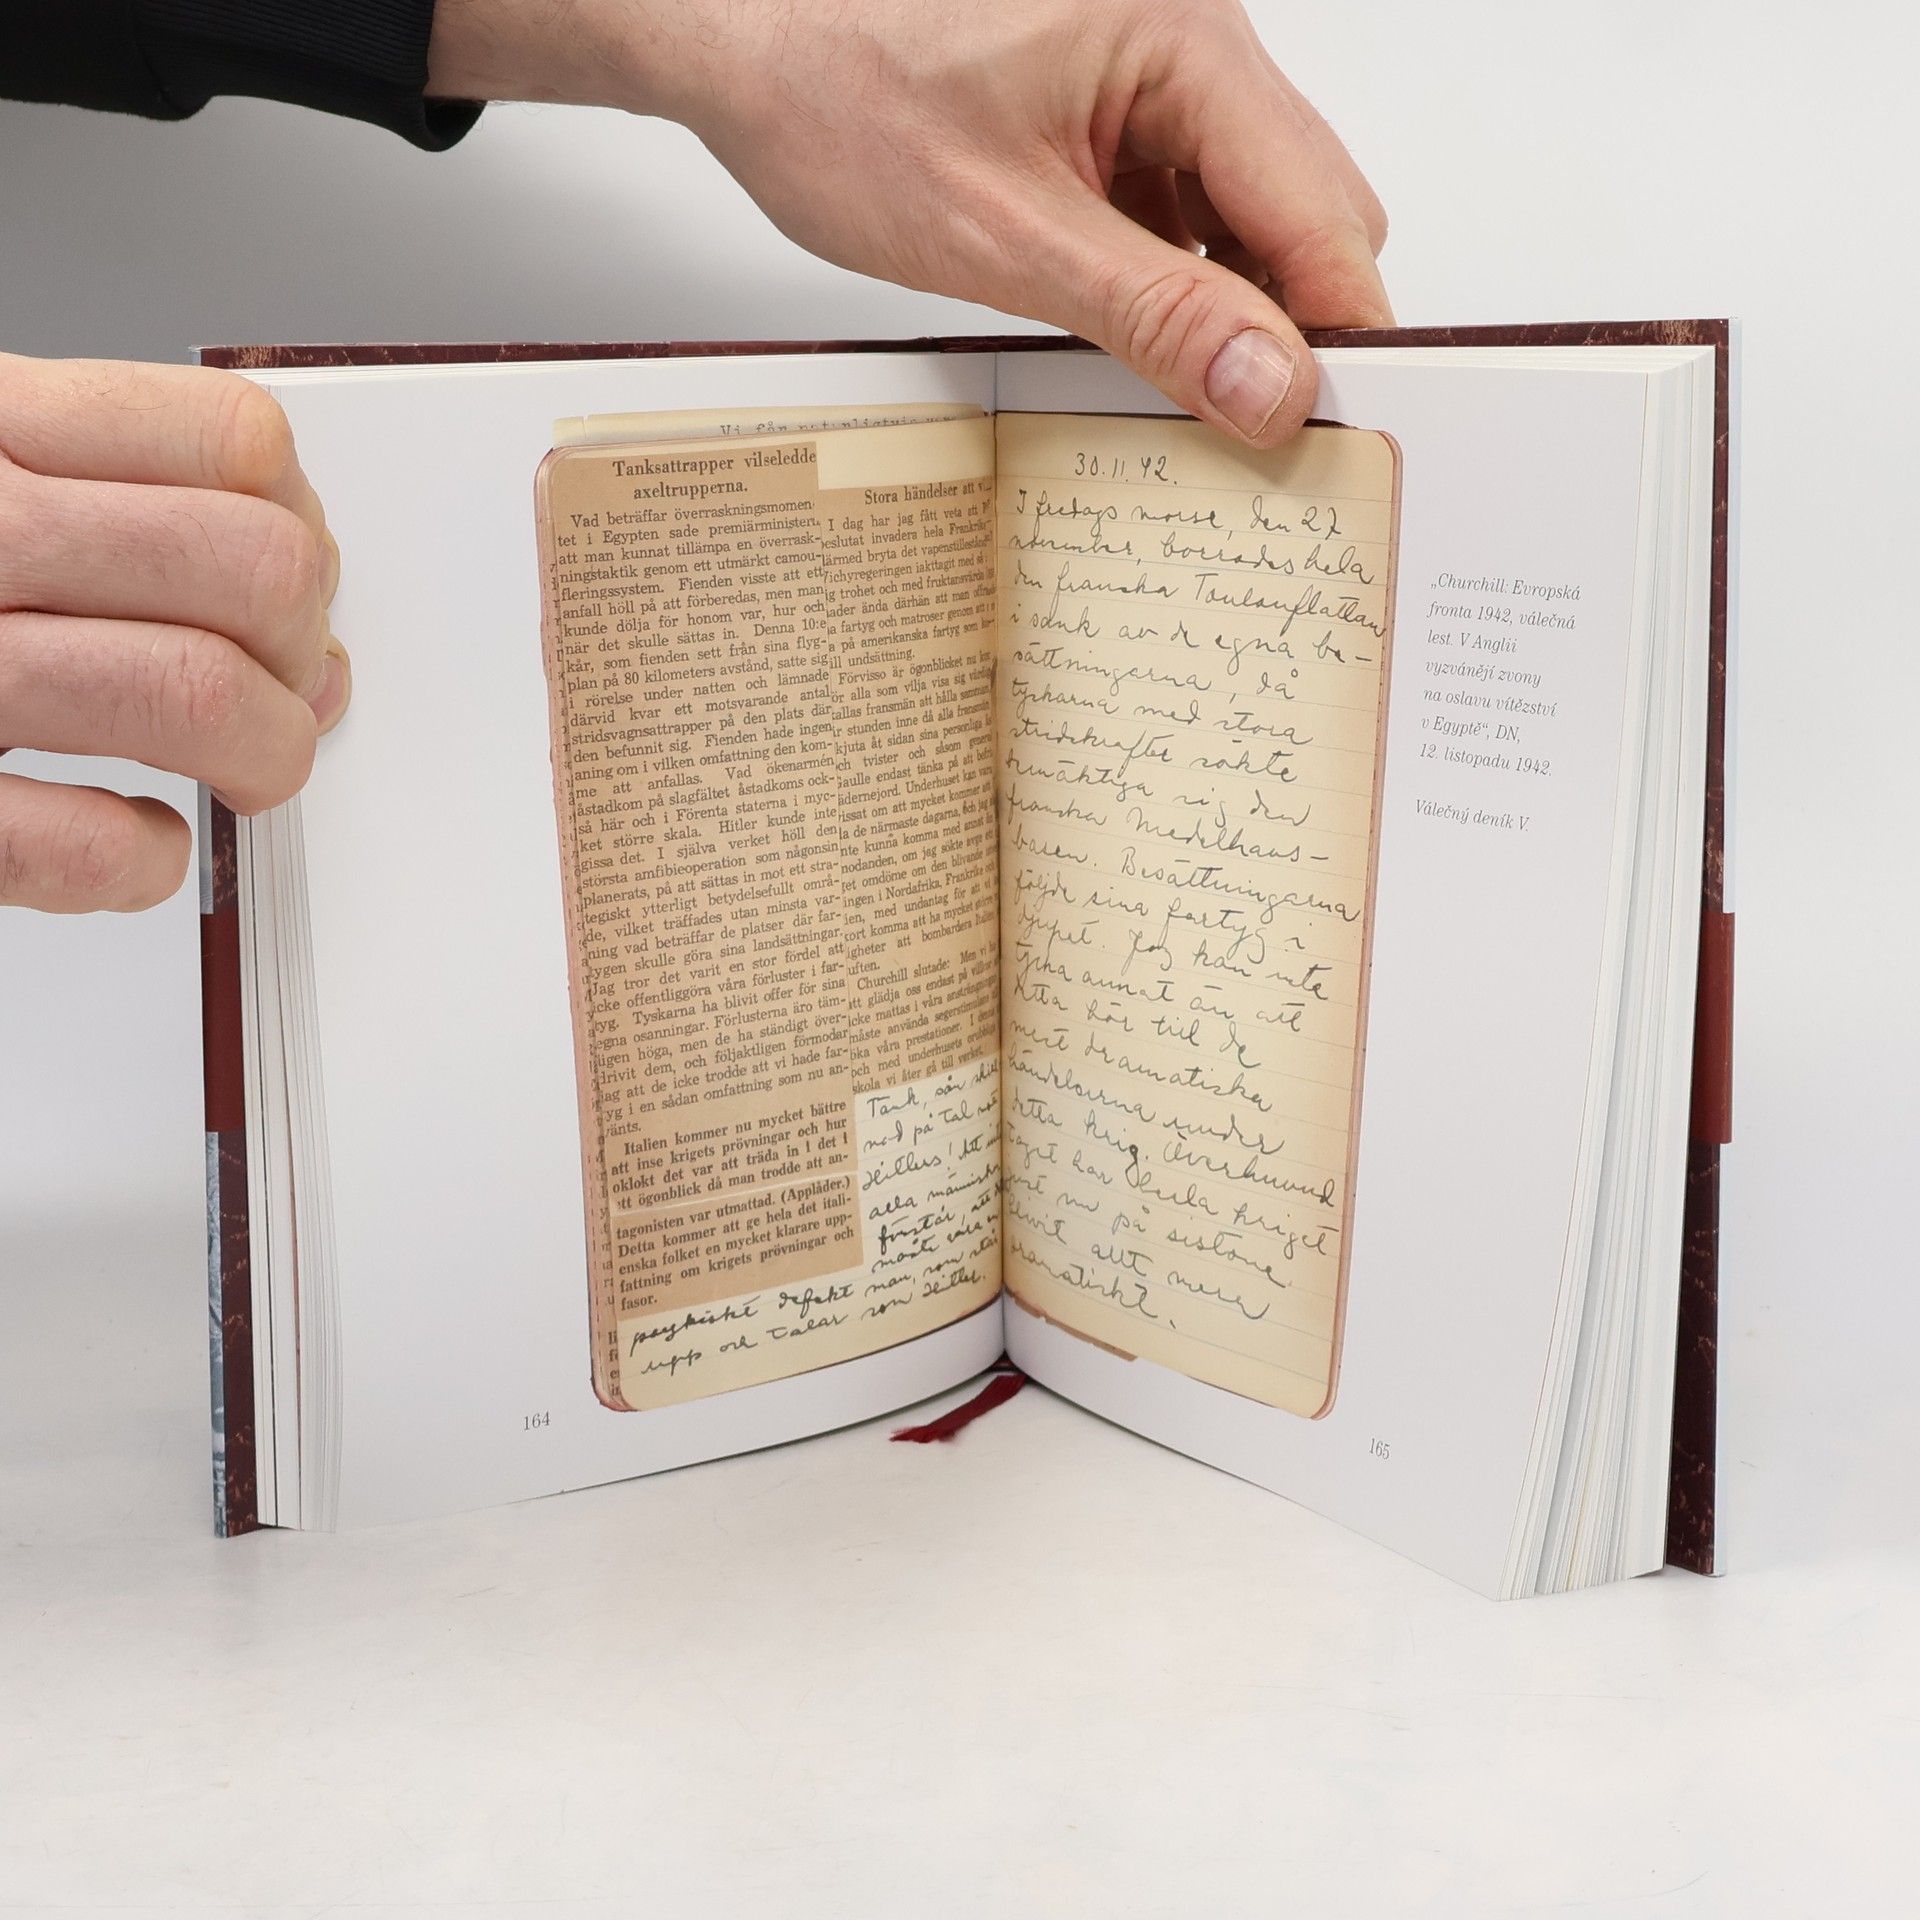 Tanksattrapper vilseledde
axeltrupperna.
Vad beträffar överraskningsmomen-
tet i Egypten sade premiärministern,
att man kunnat tillämpa en överrask-
ningstaktik genom ett utmärkt camou-
fleringssystem. Fienden visste att ett
anfall höll på att förberedas, men man
kunde dölja för honom var, hur och
när det skulle sättas in. Denna 10:e
kår, som fienden sett från sina flyg-
plan på 80 kilometers avstånd, satte sig
i rörelse under natten och lämnade
därvid kvar ett motsvarande antal
stridsvagnsattrapper på den plats där
den befunnit sig. Fienden hade ingen
aning om i vilken omfattning den kom-
me att anfallas. Vad ökenarmén
åstadkom på slagfältet åstadkoms ock-
så här och i Förenta staterna i myc-
ket större skala. Hitler kunde inte
gissa det. I själva verket höll den
största amfibieoperation som någonsin
planerats, på att sättas in mot ett stra-
tegiskt ytterligt betydelsefullt områ-
de, vilket träffades utan minsta var-
ning vad beträffar de platser där far-
tygen skulle göra sina landsättningar.
Jag tror det varit en stor fördel att
icke offentliggöra våra förluster i far-
tyg. Tyskarna ha blivit offer för sina
egna osanningar. Förlusterna äro täm-
ligen höga, men de ha ständigt över-
drivit dem, och följaktligen förmodar
jag att de icke trodde att vi hade far-
tyg i en sådan omfattning som nu an-
vänts.
Italien kommer nu mycket bättre
att inse krigets prövningar och hur
oklokt det var att träda in i det i
ett ögonblick då man trodde att an-
tagonisten var utmattad. (Applåder.)
Detta kommer att ge hela det itali-
enska folket en mycket klarare upp-
fattning om krigets prövningar och
fasor.
Stora händelser att
I dag har jag fått veta att
beslutat invadera hela Frankrike
därmed bryta det vapenstillestånd
Vichyregeringen iakttagit med så
ig trohet och med fruktansvärda
ända därhän att man
fartyg och matroser genom att
på amerikanska fartyg som
till undsättning.
Förvisso är ögonblicket nu
för alla som vilja visa sig
kallas fransmän att hålla samman
stunden inne då alla fransmän
skjuta åt sidan sina personliga
och tvister och såsom general
Gaulle endast tänka på att
fädernejord. Underhuset kan vara
att mycket kommer
de närmaste dagarna, och jag
inte kunna komma med annat
om jag sökte avge
omdöme om den blivande
i Nordafrika, Frankrike och
Italien, med undantag för att vi
komma att ha mycket större
att bombardera Italien
luften.
Churchill slutade: Men vi ha
att glädja oss endast på villkor
icke mattas i våra ansträngningar
måste använda segerstimulans
öka våra prestationer. I denna
och med underhusets
skola vi åter gå till verket.
Tänk, sån skill-
nad på tal mot
Hitlers! Att inte
alla människor
förstår, att det
måste vara en
psykiskt defekt man, som står
upp och talar som Hitler.
164
30.11.42.
I fredags morse, den 27
november, borrades hela
den franska Toulonflottan
i sank av de egna be-
sättningarna, då
tyskarna med stora
stridskrafter sökte
bemäktiga sig den
franska Medelhavs-
basen. Besättningarna
följde sina fartyg i
djupet. Jag kan inte
tycka annat än att
detta hör till de
mest dramatiska
händelserna under
detta krig. Överhuvud
taget har hela kriget
just nu på sistone
blivit allt mera
dramatiskt.
„Churchill: Evropská
fronta 1942, válečná
lest. V Anglii
vyzvánějí zvony
na oslavu vítězství
v Egyptě“, DN,
12. listopadu 1942.
Válečný deník V.
165